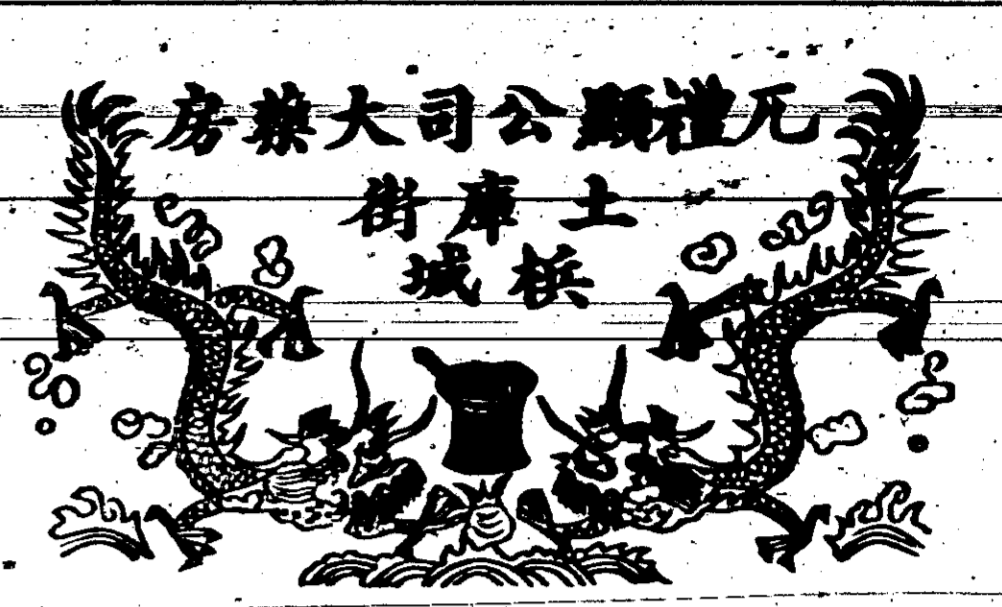 兀禮顯公司大藥房
土庫街
梹城